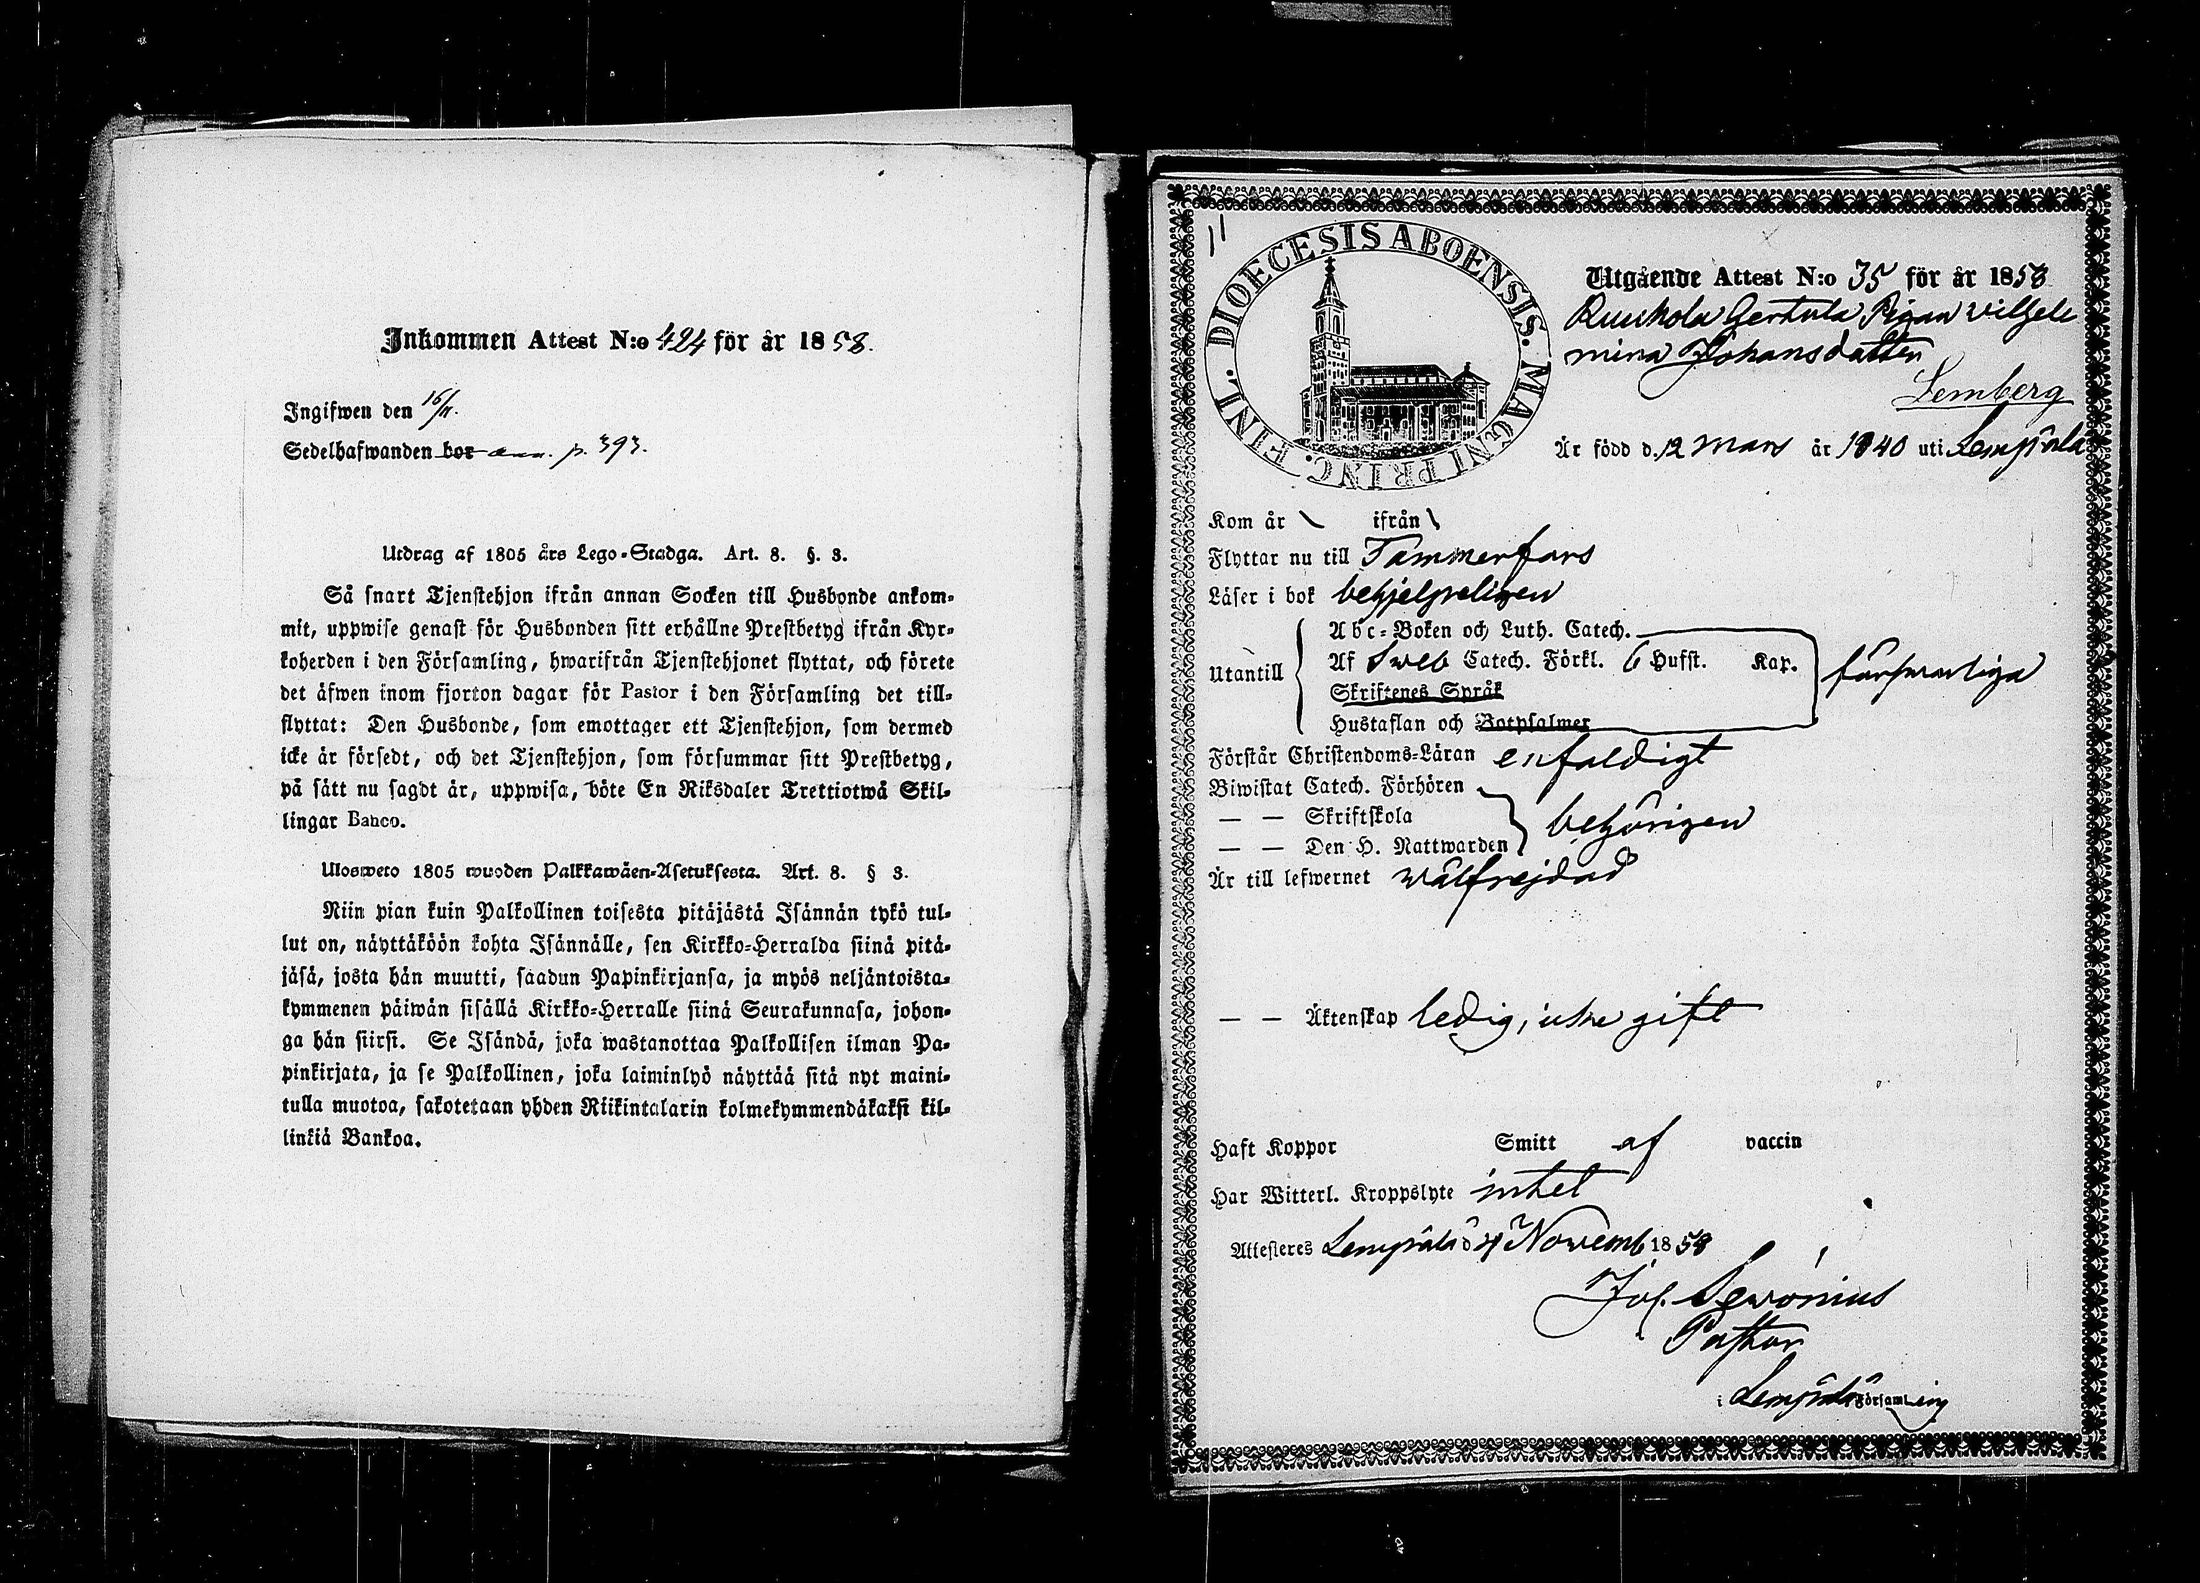 Inkommen Attest N:o 424 för år 1858.
Ingifwen den 16/11.
Sedelhafwanden bor ann. p. 393.
Utdrag af 1805 års Lego-Stadga. Art. 8. §. 3.
Så snart Tjenstehjon ifrån annan Socken till Husbonde ankom-
mit, uppwise genast för Husbonden sitt erhållne Prestbetyg ifrån Kyr-
koherden i den Församling, hwarifrån Tjenstehjonet flyttat, och förete
det äfwen inom fjorton dagar för Pastor i den Församling det till-
flyttat: Den Husbonde, som emottager ett Tjenstehjon, som dermed
icke är försedt, och det Tjenstehjon, som försummar sitt Prestbetyg,
på sätt nu sagdt är, uppwisa, böte En Riksdaler Trettiotwå Skil-
lingar Banco.
Ulosweto 1805 wuoden Palkkawäen-Asetuksesta. Art. 8. § 3.
Niin pian kuin Palkollinen toisesta pitäjästä Isännän tykö tul-
lut on, näyttäköön kohta Isännälle, sen Kirkko-Herralda siinä pitä-
jäsä, josta hän muutti, saadun Papinkirjansa, ja myös neljäntoista-
kymmenen päiwän sisällä Kirkko-Herralle siinä Seurakunnasa, johon-
ga hän siirsi. Se Isändä, joka wastanottaa Palkollisen ilman Pa-
pinkirjata, ja se Palkollinen, joka laiminlyö näyttää sitä nyt maini-
tulla muotoa, sakotetaan yhden Riikintalarin kolmekymmendäkaksi kil-
linkiä Bankoa.
11
FINL. DIOECESIS ABOENSIS. MAGNI PRINC.
Utgående Attest N:o 35 för år 1858
Ruuhola Gertula Pigan Wilhel
mina Johansdotter
Lemberg
Är född d. 12 Mars år 1840 uti Lempäla
Kom år \ ifrån \
Flyttar nu till Tammerfors
Läser i bok behjelpeligen
Utantill
Abc-Boken och Luth. Catech.
Af Sweb Catech. Förkl. 6 Hufst. Kap.
försvarliga
Skriftenes Språk
Hustaflan och Botpsalmer
Förstår Christendoms-Läran enfaldigt
Biwistat Catech. Förhören
— — Skriftskola behörigen
— — Den H. Nattwarden
Är till lefwernet wälfrejdad
— — Äktenskap ledig, icke gift
Haft Koppor Smitt af vaccin
Har Witterl. Kroppslyte intet
Attesteres Lempäla d 4 Novemb 1858
Jos. Sevonius
Pastor
i Lempäla Församling